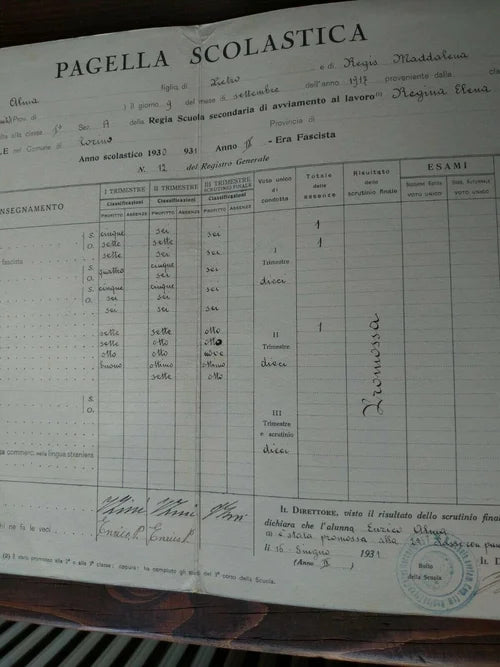 PAGELLA SCOLASTICA
Alma figlia di Pietro e di Regis Maddalena
Prov. di ) il giorno 9 del mese di settembre dell'anno 1917 proveniente dalla
alla classe 1ª Sez. A della Regia Scuola secondaria di avviamento al lavoro (1) Regina Elena
LE nel Comune di Torino Provincia di
Anno scolastico 1930 931 Anno IX - Era Fascista
N. 12 del Registro Generale
NSEGNAMENTO
I TRIMESTRE II TRIMESTRE III TRIMESTRE SCRUTINIO FINALE Voto unico di condotta Totale delle assenze Risultato dello scrutinio finale ESAMI
Classificazioni Classificazioni Classificazioni
PROFITTO ASSENZE PROFITTO ASSENZE PROFITTO ASSENZE VOTO UNICO VOTO UNICO
S. cinque sei sei 1
O. sette sette 1
fascista sette sei sei I Trimestre
S. quattro cinque
O. sei sei
S. cinque cinque dieci
O. sei sei sei
sei sei sei
sette sette otto II Trimestre 1
sette otto otto
otto otto nove dieci
buono ottimo ottimo
sette otto
Promossa
S.
O. III Trimestre e scrutinio
dieci
commerc. nella lingua straniera
Enrico P. Enrico P.
hi ne fa le veci
IL DIRETTORE, visto il risultato dello scrutinio final
dichiara che l'alunna Enrico Alma
è stata promossa alla 2ª classe con pun
li 16 Giugno 1931
(Anno IX)
Bollo della Scuola
IL D
(2) È stato promosso alla 2ª o alla 3ª classe; oppure: ha compiuto gli studi del 3º corso della Scuola.